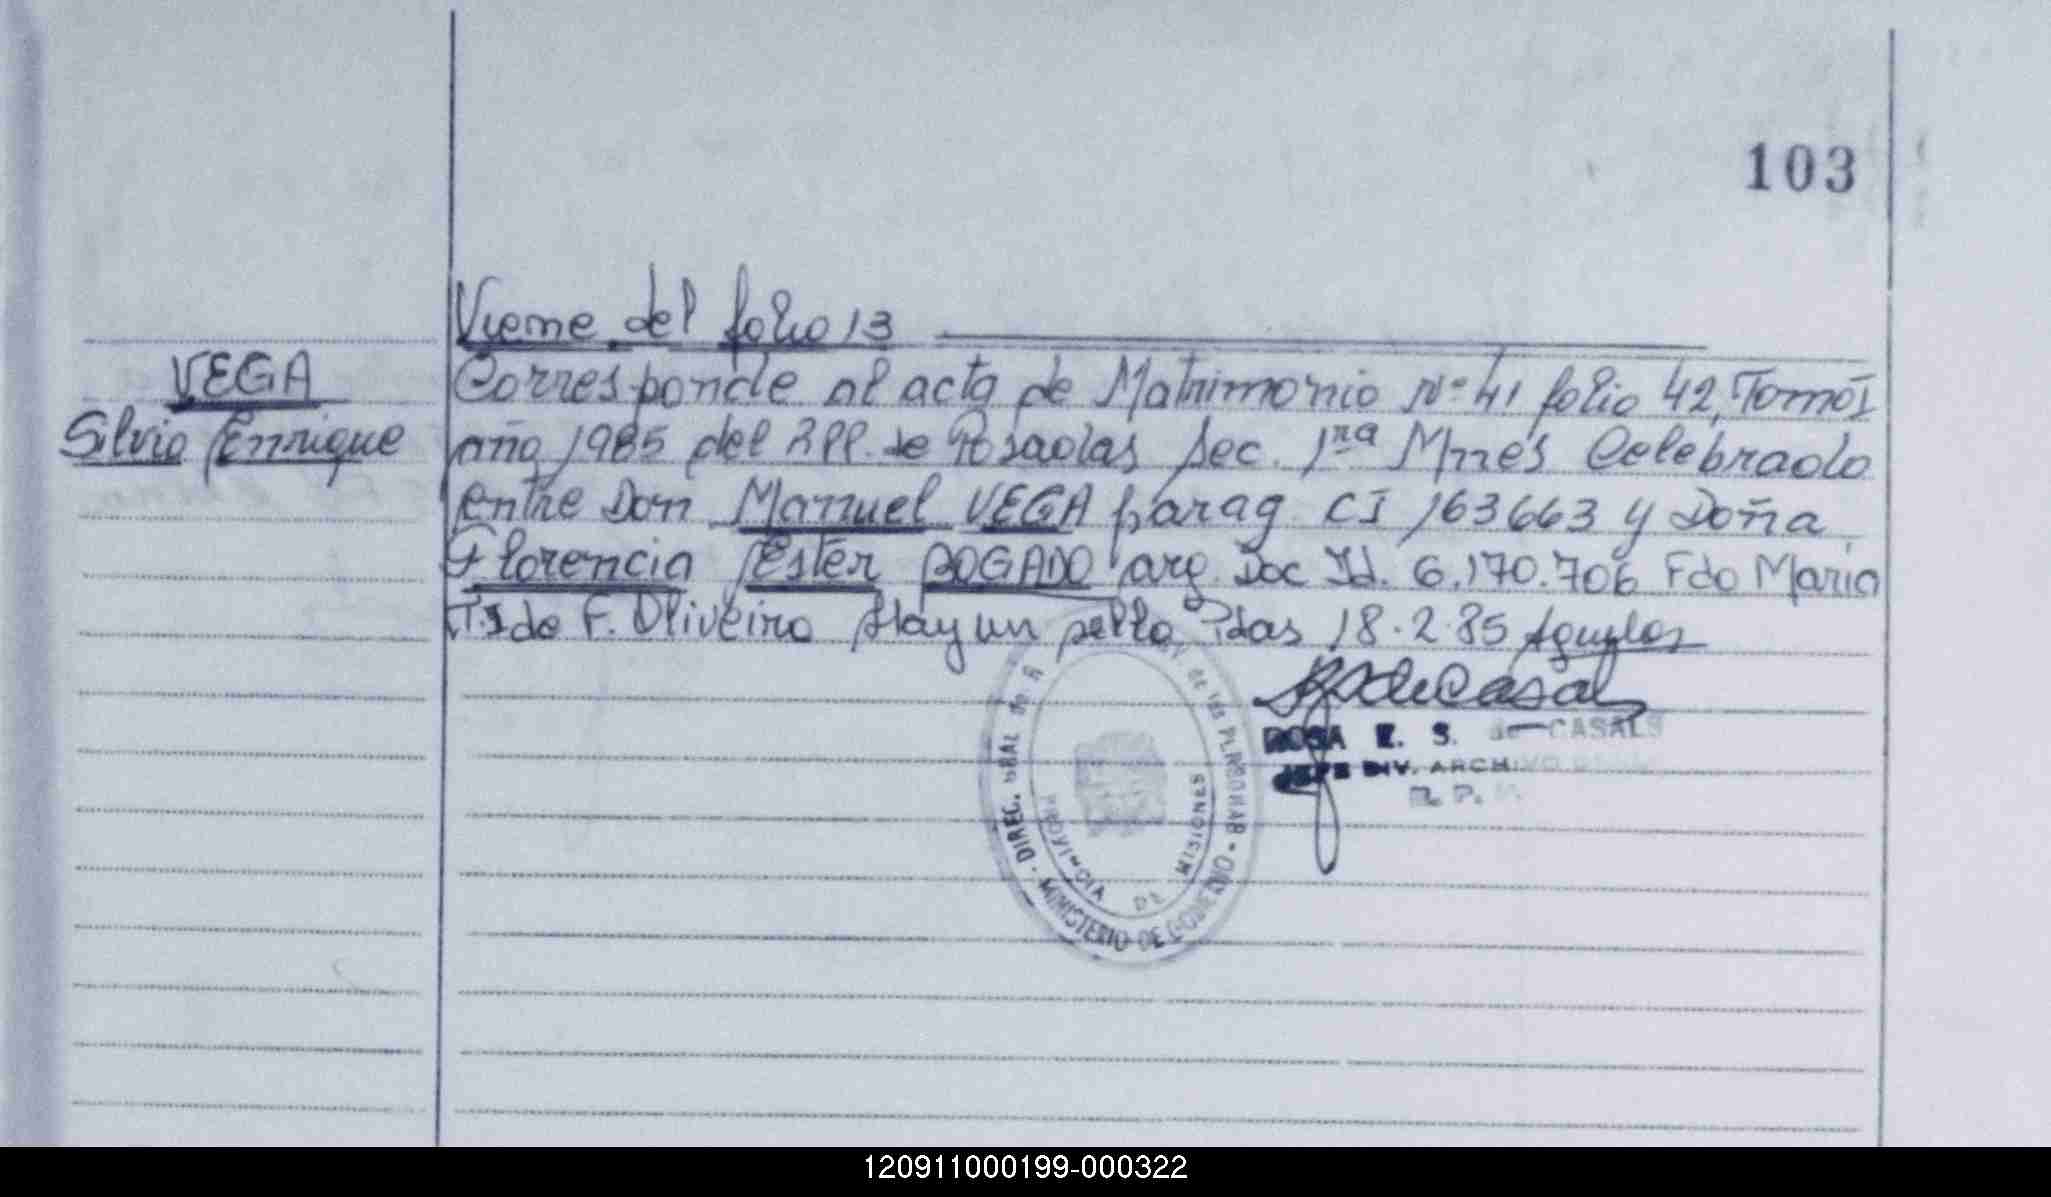 103
Viene del folio 13
VEGA
Silvio Enrique
Corresponde al acta de Matrimonio Nº 41 folio 42, Tomo I
año 1985 del RPP. de Posadas Sec. 1ra Mnes Celebrado
entre Don Manuel VEGA parag. CI 163663 y Doña
Florencia Ester BOGADO arg. Doc Id. 6.170.706 Fdo Maria
T. de F. Oliveira Hay un sello Pdas 18.2.85
ROSA E. S. de CASALS
JEFE DIV. ARCHIVO
R. P.
DIREC. GRAL de de las PERSONAS
MINISTERIO DE GOBIERNO
PROVINCIA DE MISIONES
120911000199-000322